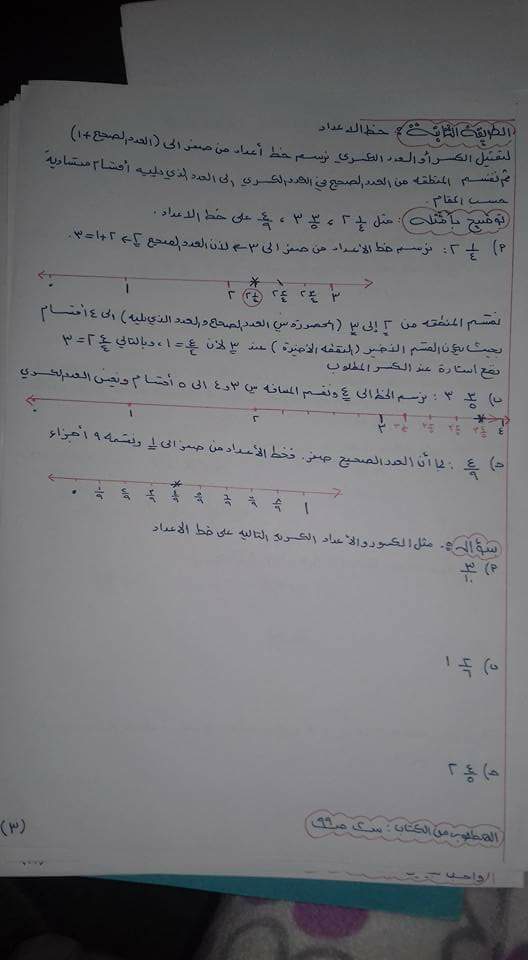 الطريقة الثانية : خط الاعداد
لتمثيل الكسر أو العدد الكسري نرسم خط أعداد من صفر الى (العدد الصحيح + ١)
ثم نقسم المنطقه من العدد الصحيح في العدد الكسري الى العدد الذي يليه أقسام متساوية
حسب المقام.
توضيح بأمثلة : مثل ٢ ١/٤ ، ٣ ٣/٥ ، ٤/٩ على خط الاعداد.
٢ ١/٤ : نرسم خط الأعداد من صفر الى ٣ لأن العدد الصحيح ٢ ← ٢ + ١ = ٣.
٠ ١ ٢ ٢ ١/٤ ٢ ٢/٤ ٢ ٣/٤ ٣
نقسم المنطقه من ٢ الى ٣ (المحصورة بين العدد الصحيح والعدد الذي يليه) الى ٤ أقسام
بحيث يكون القسم الأخير (النقطه الأخيرة) عند ٣ لأن ٤/٤ = ١ ، وبالتالي ٢ ٤/٤ = ٣
نضع اشارة عند الكسر المطلوب
ب) ٣ ٣/٥ : نرسم الخط الى ٤ ونقسم المسافه بين ٣ و ٤ الى ٥ أقسام ونعين العدد الكسري
٠ ١ ٢ ٣ ٤
ج) ٤/٩ : بما أن العدد الصحيح صفر. فخط الأعداد من صفر الى ١ ونقسمه ٩ أجزاء
٠ ١/٩ ٢/٩ ٣/٩ ٤/٩ ٥/٩ ٦/٩ ٧/٩ ٨/٩ ١
سؤال : مثل الكسور والأعداد الكسرية التاليه على خط الاعداد
٣/١٠
ب) ١ ٢/٦
ج) ٢ ٤/٥
المطلوب من الكتاب : س٢ ص٩٩
(٣)